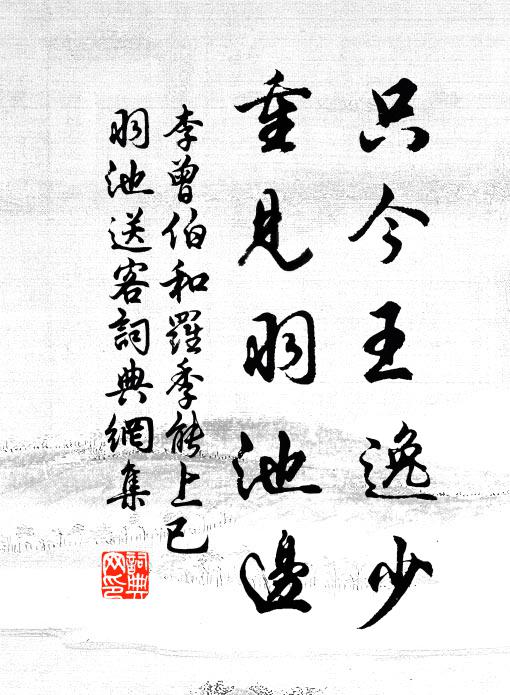 只今王逸少
重見羽池邊
李曾伯和羅季能上巳
羽池送客詞典網集
詞典
网印